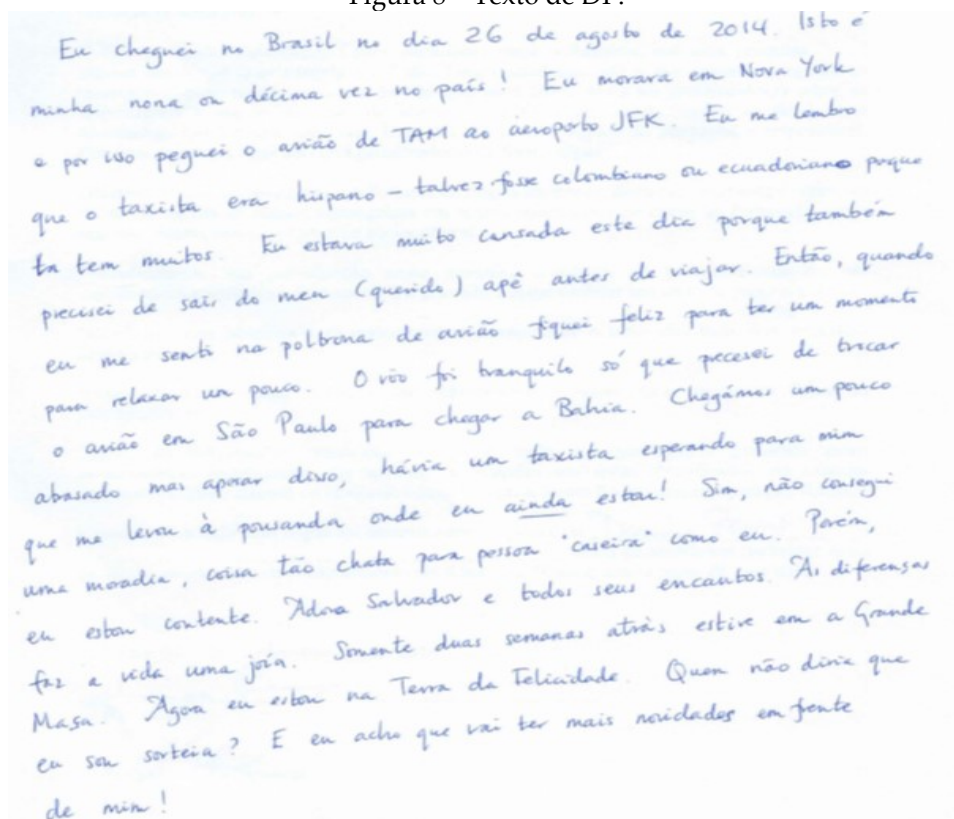 Figura 8 – Texto de DP.
Eu cheguei no Brasil no dia 26 de agosto de 2014. Isto é
minha nona ou décima vez no país! Eu morava em Nova York
e por isso peguei o avião de TAM ao aeroporto JFK. Eu me lembro
que o taxista era hispano – talvez fosse colombiano ou ecuadoriano porque
tem muitos. Eu estava muito cansada este dia porque também
precisei de sair do meu (querido) apê antes de viajar. Então, quando
eu me senti na poltrona de avião fiquei feliz para ter um momento
para relaxar um pouco. O vôo foi tranquilo só que precesei de trocar
o avião em São Paulo para chegar a Bahia. Chegámos um pouco
abasado mas apesar disso, hávia um taxista esperando para mim
que me levou à pousanda onde eu ainda estou! Sim, não consegui
uma moradia, coisa tão chata para pessoa "caseira" como eu. Porém,
eu estou contente. Adora Salvador e todos seus encantos. As diferensas
faz a vida uma jóia. Somente duas semanas atrás estive em a Grande
Masa. Agora eu estou na Terra da Felicidade. Quen não diria que
eu sou sorteia? E eu acho que vai ter mais novidades em frente
de mim!